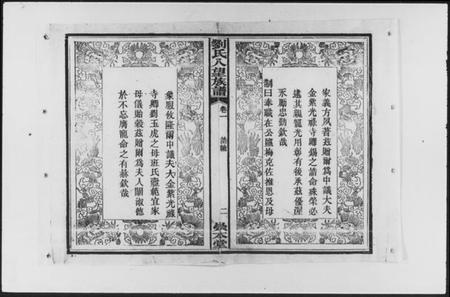 家義方夙著茲贈爾爲中議大夫
金紫光祿寺卿錫之誥命殊榮必
逮其親寵光用彰有後承茲優渥
永勵忠勤欽哉
制曰奉職在公克佐推恩及母
劉氏八望族譜
卷一
誥勅
二
敦本堂
象服攸隆爾中議大夫金紫光祿
寺卿劉玉虎之母班氏禮範宜家
母儀貽穀茲贈爾爲夫人闡淑德
於不忘膺寵命之有赫欽哉